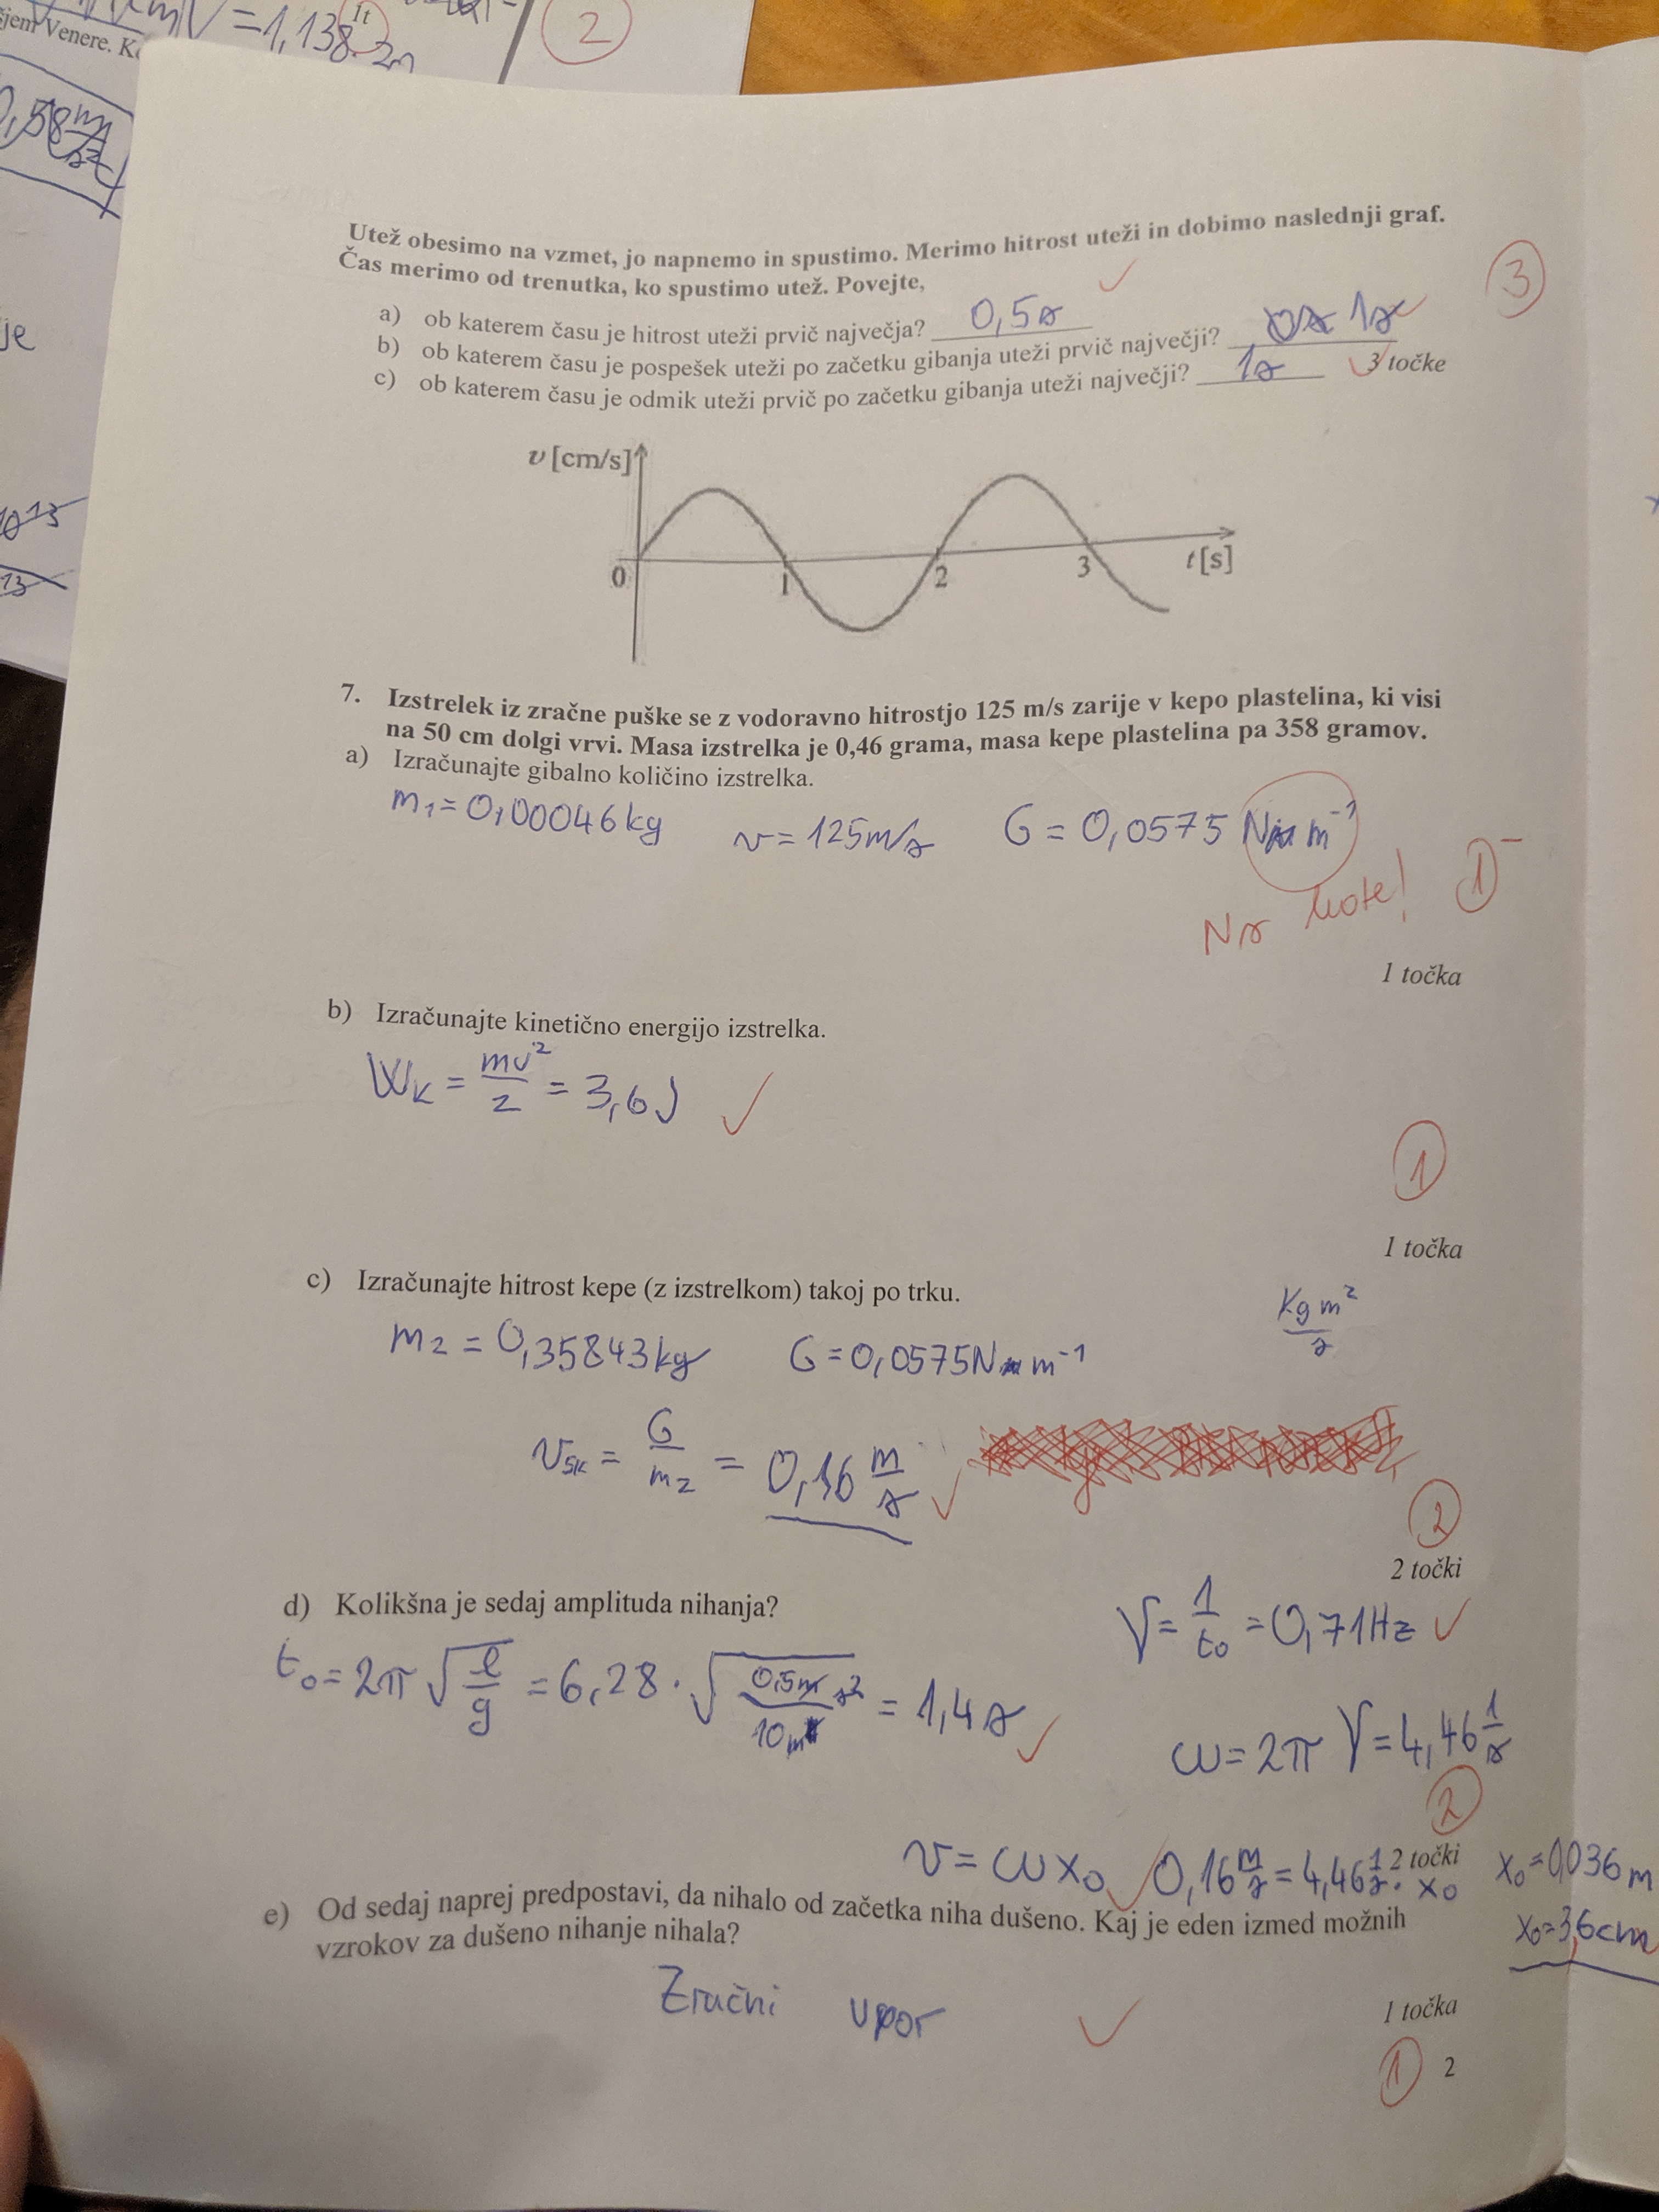 jem Venere. K
= 1,138
1t
2
0,58 m/s²
je
10^13
13
Utež obesimo na vzmet, jo napnemo in spustimo. Merimo hitrost uteži in dobimo naslednji graf.
Čas merimo od trenutka, ko spustimo utež. Povejte,
3
a) ob katerem času je hitrost uteži prvič največja? 0,5s
b) ob katerem času je pospešek uteži po začetku gibanja uteži prvič največji? 0s 1s
c) ob katerem času je odmik uteži prvič po začetku gibanja uteži največji? 1s
3 točke
v [cm/s]
0 1 2 3 t [s]
7. Izstrelek iz zračne puške se z vodoravno hitrostjo 125 m/s zarije v kepo plastelina, ki visi
na 50 cm dolgi vrvi. Masa izstrelka je 0,46 grama, masa kepe plastelina pa 358 gramov.
a) Izračunajte gibalno količino izstrelka.
m₁ = 0,00046 kg v = 125 m/s G = 0,0575 N m⁻¹
Ns 1⁻
1 točka
b) Izračunajte kinetično energijo izstrelka.
Wk = mv²/2 = 3,6 J
1
1 točka
c) Izračunajte hitrost kepe (z izstrelkom) takoj po trku.
kg m²/s
m₂ = 0,35843 kg G = 0,0575 N m⁻¹
vsk = G/m₂ = 0,16 m/s
2
2 točki
d) Kolikšna je sedaj amplituda nihanja?
ν = 1/t₀ = 0,71 Hz
t₀ = 2π √(l/g) = 6,28 · √(0,5m s²/10m) = 1,4 s
ω = 2π ν = 4,46 1/s
2
2 točki
v = ω x₀ 0,16 m/s = 4,46 1/s · x₀ x₀ = 0,036 m
x₀ = 3,6 cm
e) Od sedaj naprej predpostavi, da nihalo od začetka niha dušeno. Kaj je eden izmed možnih
vzrokov za dušeno nihanje nihala?
Zračni upor
1 točka
1
2